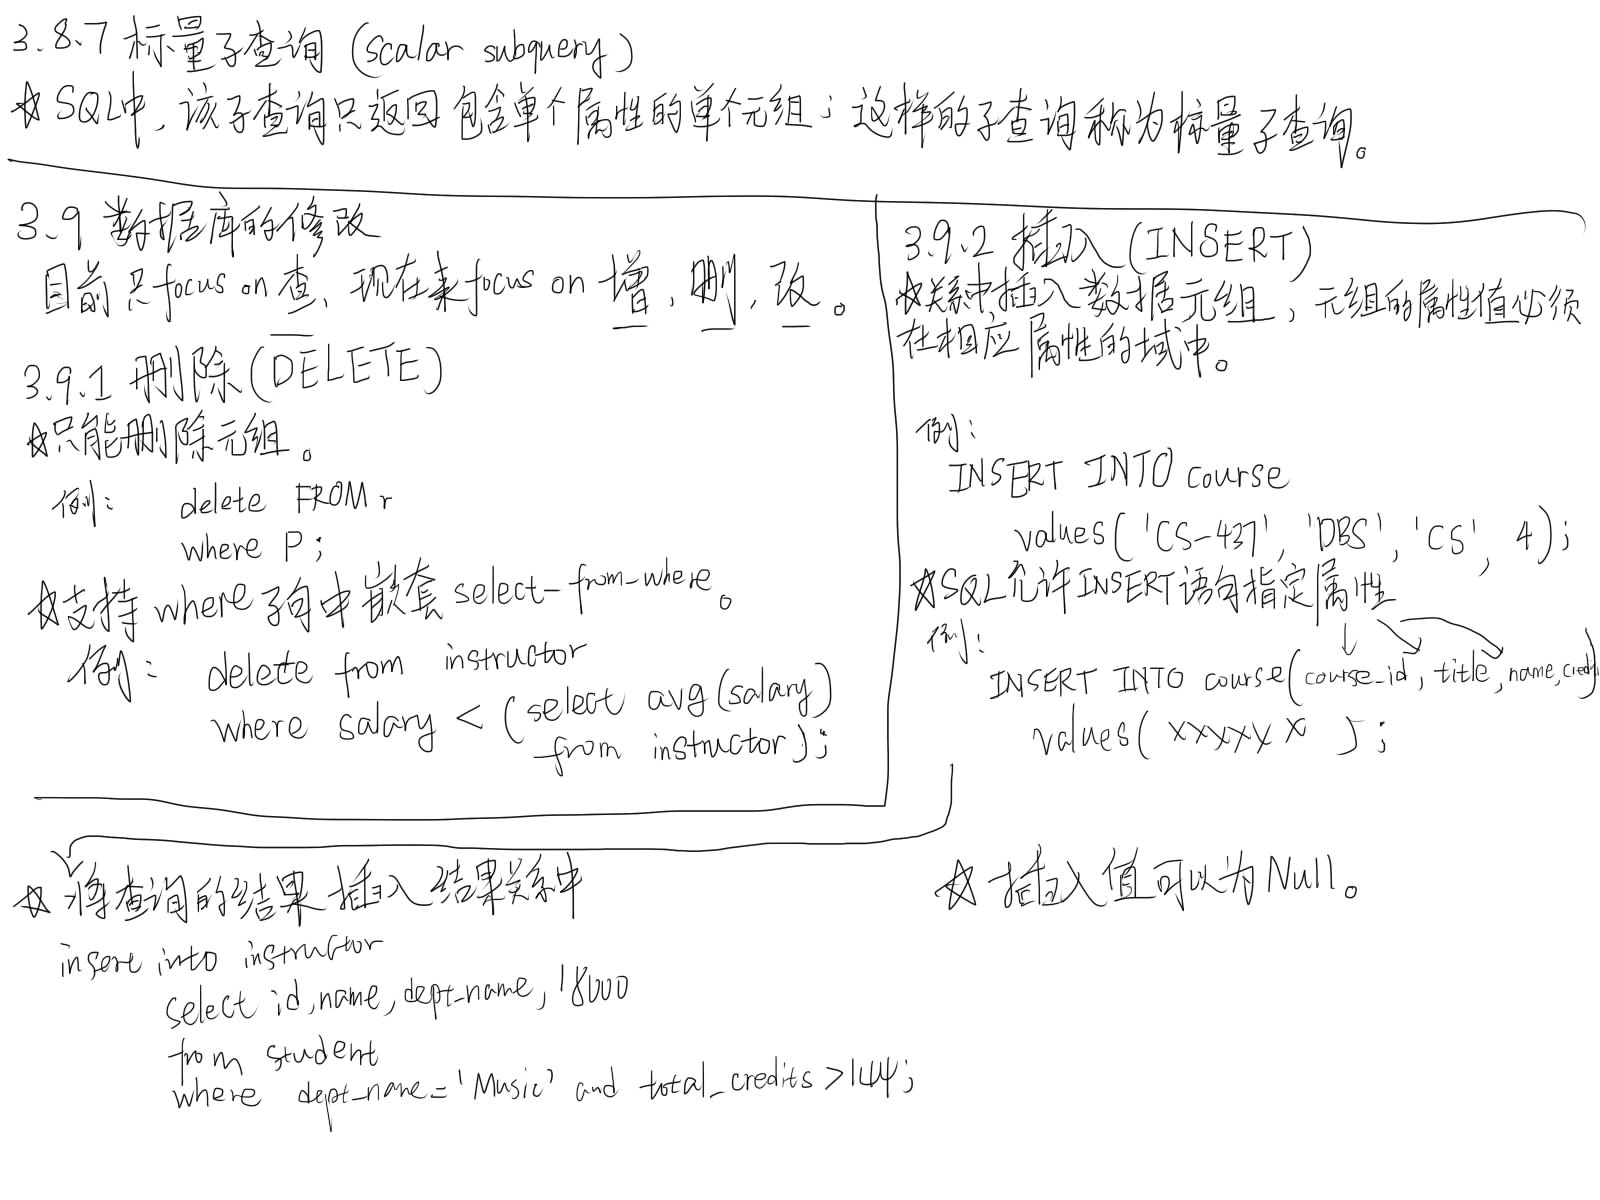 3.8.7 标量子查询 (scalar subquery)
☆ SQL中, 该子查询只返回包含单个属性的单个元组; 这样的子查询称为标量子查询。
3.9 数据库的修改
目前只focus on 查、现在来focus on 增, 删, 改。
3.9.1 删除(DELETE)
☆只能删除元组。
例: delete FROM r
where P;
☆支持 where子句中嵌套 select-from-where。
例: delete from instructor
where salary < (select avg(salary)
from instructor);
3.9.2 插入(INSERT)
☆关系中插入数据元组, 元组的属性值必须
在相应属性的域中。
例:
INSERT INTO course
values('CS-437', 'DBS', 'CS', 4);
☆SQL允许INSERT语句指定属性
例:
INSERT INTO course(course_id, title, name,
values( xxxxxx );
☆ 将查询的结果插入结果关系中
insert into instructor
select id, name, dept_name, 18000
from student
where dept_name='Music' and total_credits >144;
☆ 插入值可以为Null。